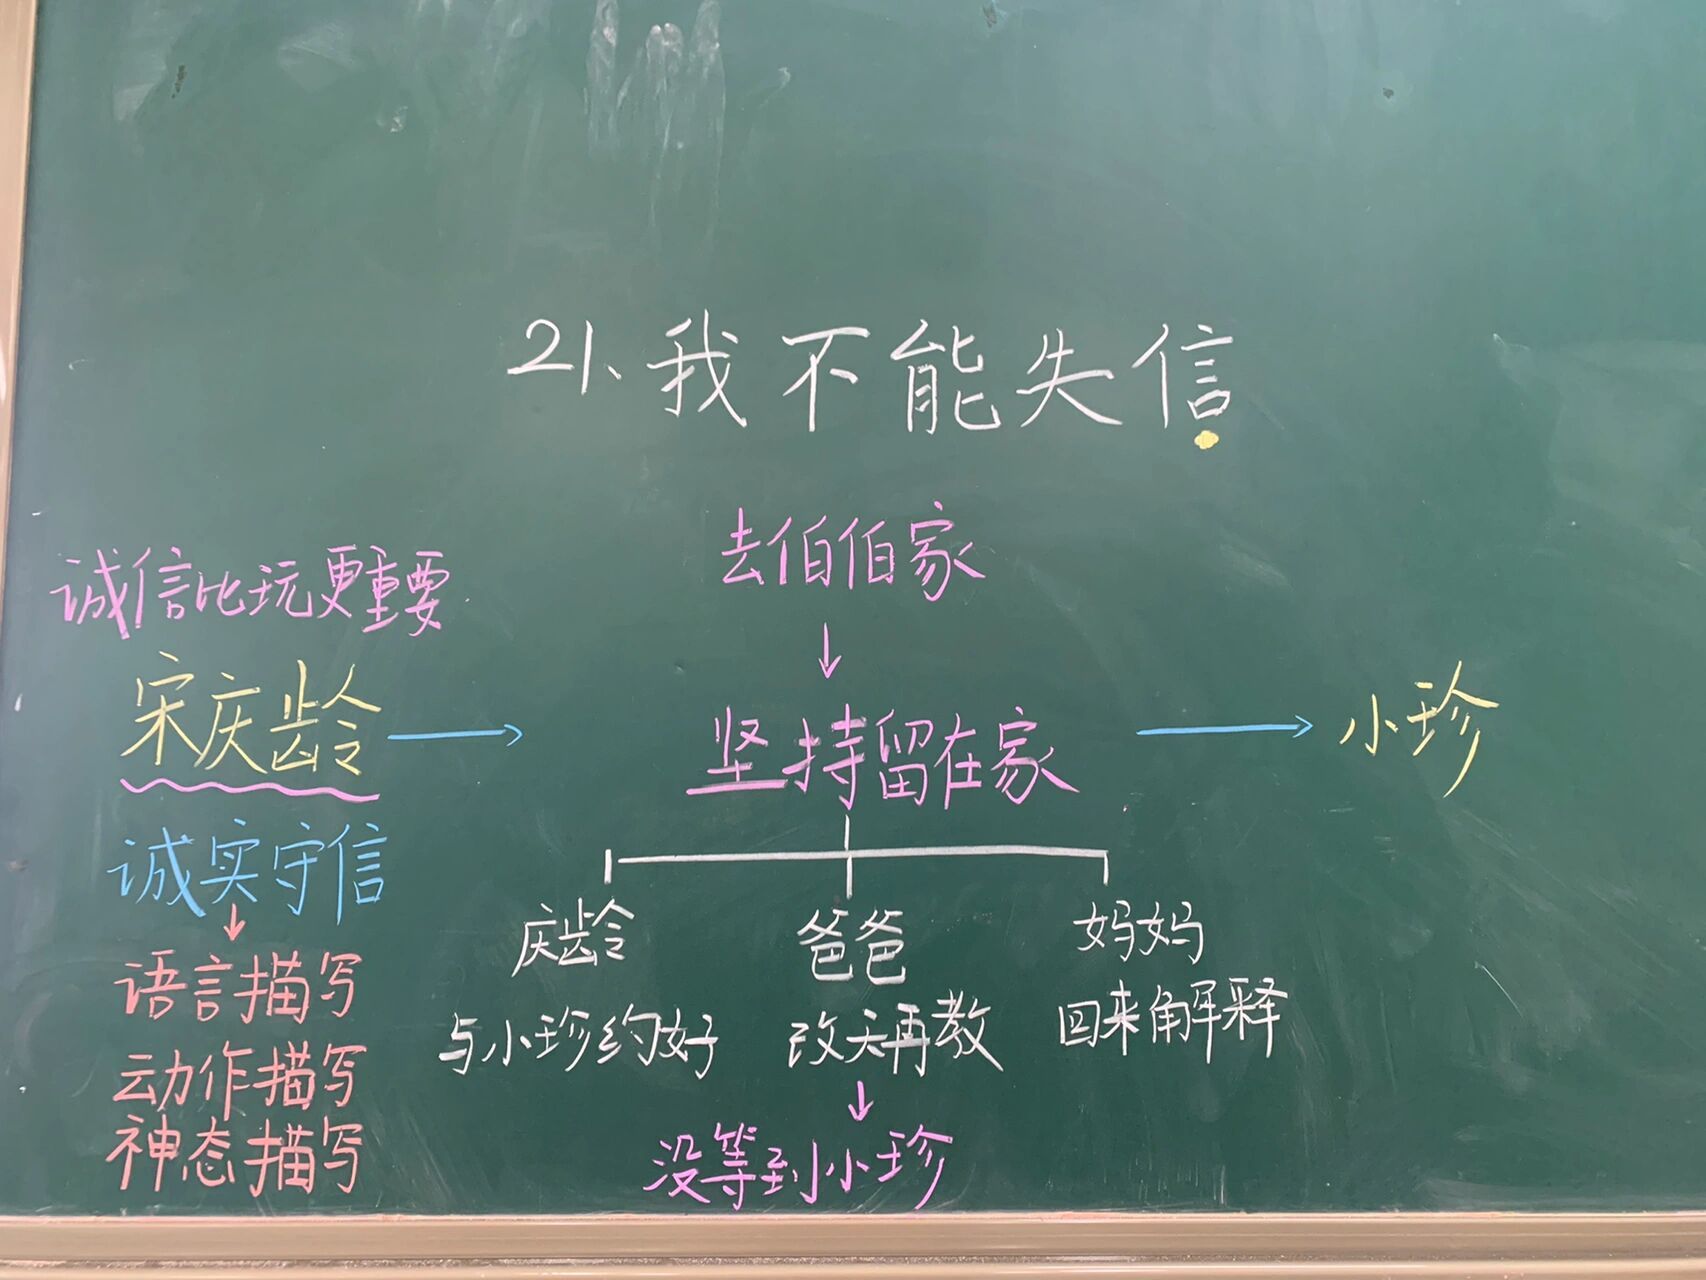 21、我不能失信
去伯伯家
诚信比玩更重要
宋庆龄
坚持留在家
小珍
诚实守信
庆龄
爸爸
妈妈
与小珍约好
改天再教
回来解释
语言描写
动作描写
神态描写
没等到小珍